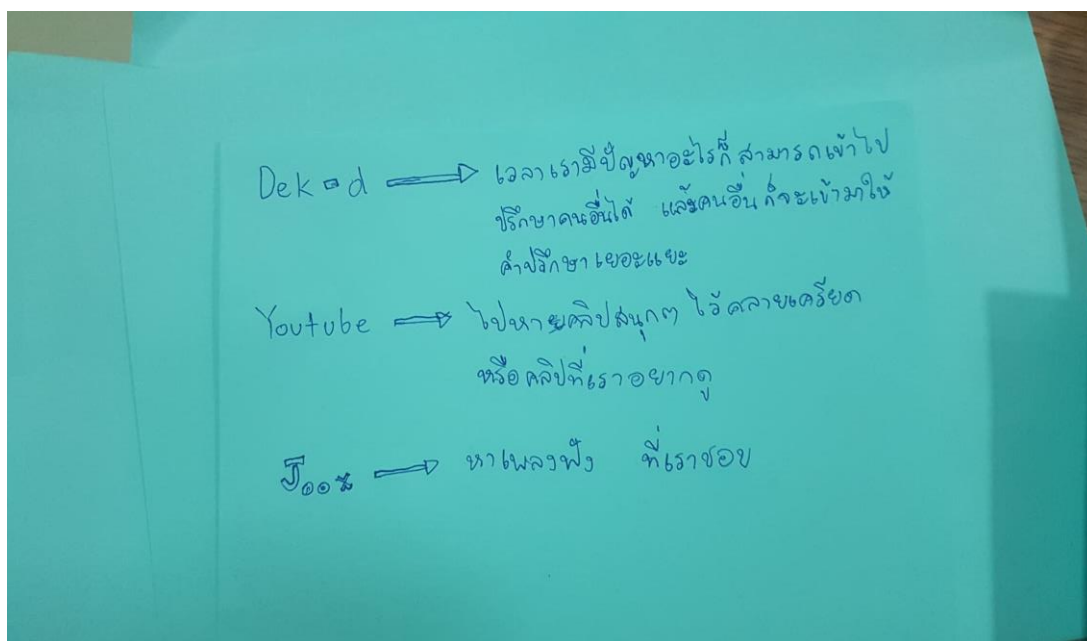 Dek-d ⇒ เวลาเรามีปัญหาอะไรก็สามารถเข้าไป
ปรึกษาคนอื่นได้ แล้วคนอื่นก็จะเข้ามาให้
คำปรึกษาเยอะแยะ
Youtube ⇒ ไปหาคลิปสนุกๆ ไว้คลายเครียด
หรือคลิปที่เราอยากดู
Joox ⇒ หาเพลงฟัง ที่เราชอบ